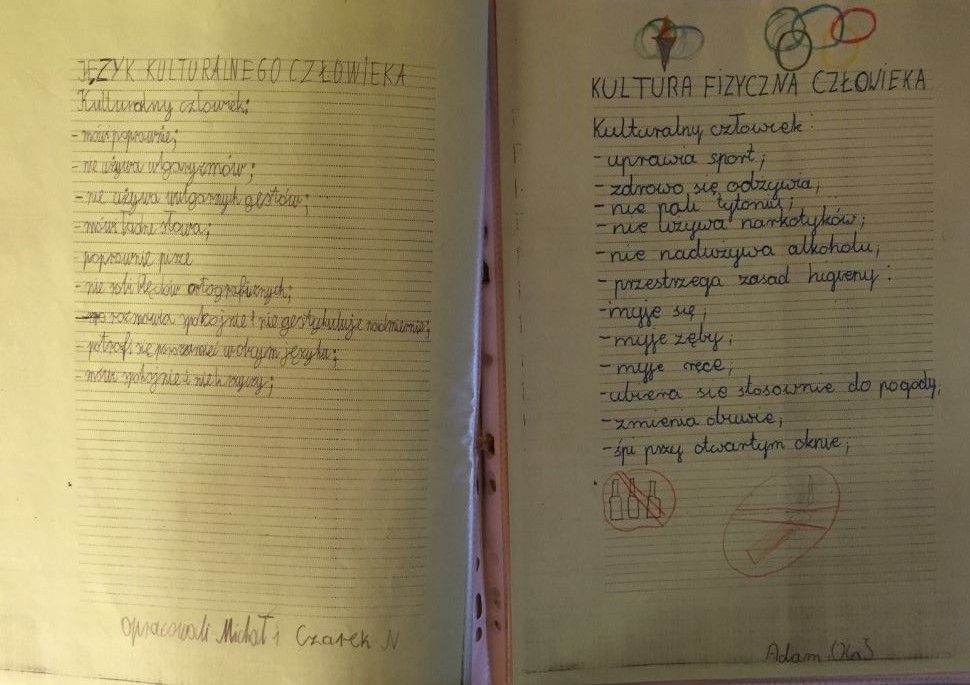 JĘZYK KULTURALNEGO CZŁOWIEKA
Kulturalny człowiek:
- mówi poprawnie;
- nie używa wulgaryzmów;
- nie używa wulgarnych gestów;
- mówi ładne słowa;
- poprawnie pisze
- nie robi błędów ortograficznych;
- rozmawia spokojnie i nie gestykuluje nadmiernie;
- potrafi się porozumieć w obcym języku;
- mówi spokojnie i nie krzyczy;
Opracowali Michał i Czarek N
KULTURA FIZYCZNA CZŁOWIEKA
Kulturalny człowiek:
- uprawia sport;
- zdrowo się odżywia;
- nie pali tytoniu;
- nie używa narkotyków;
- nie nadużywa alkoholu;
- przestrzega zasad higieny:
- myje się;
- myje zęby;
- myje ręce;
- ubiera się stosownie do pogody;
- zmienia obuwie;
- śpi przy otwartym oknie;
Adam